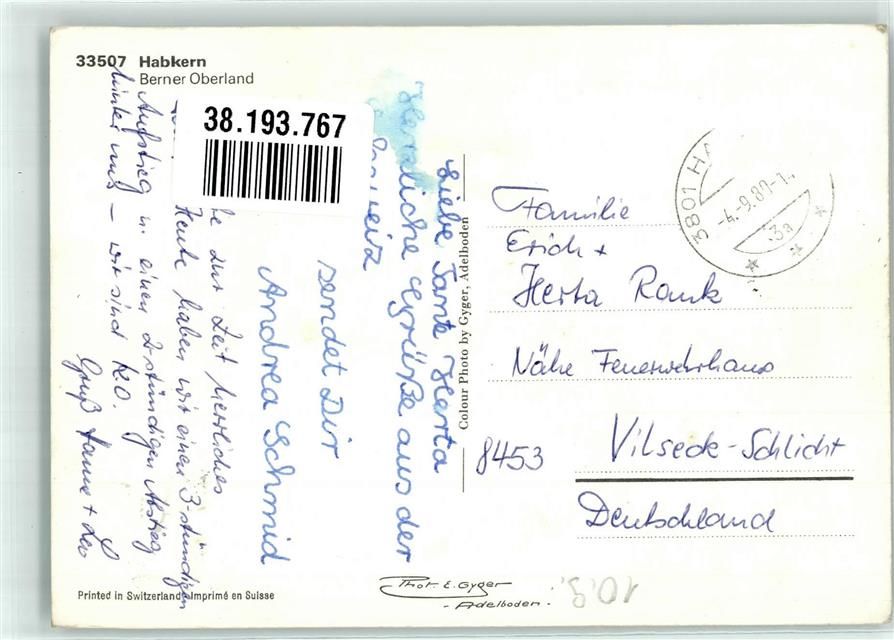 33507 Habkern
Berner Oberland
38.193.767
Liebe Tante Herta
Herzliche Grüße aus der
Schweiz
sendet Dir
Andrea Schmid
zur Zeit herrliches
Heute haben wir einen 3-stündigen
Aufstieg u. einen 2-stündigen Abstieg
hinter uns – wir sind K.O.
Gruß
Colour Photo by Gyger, Adelboden
3801 HA
-4.-9.80-1
3a
Familie
Erich +
Herta Rank
Nähe Feuerwehrhaus
8453 Vilseck-Schlicht
Deutschland
Printed in Switzerland Imprimé en Suisse
Phot. E. Gyger
- Adelboden -